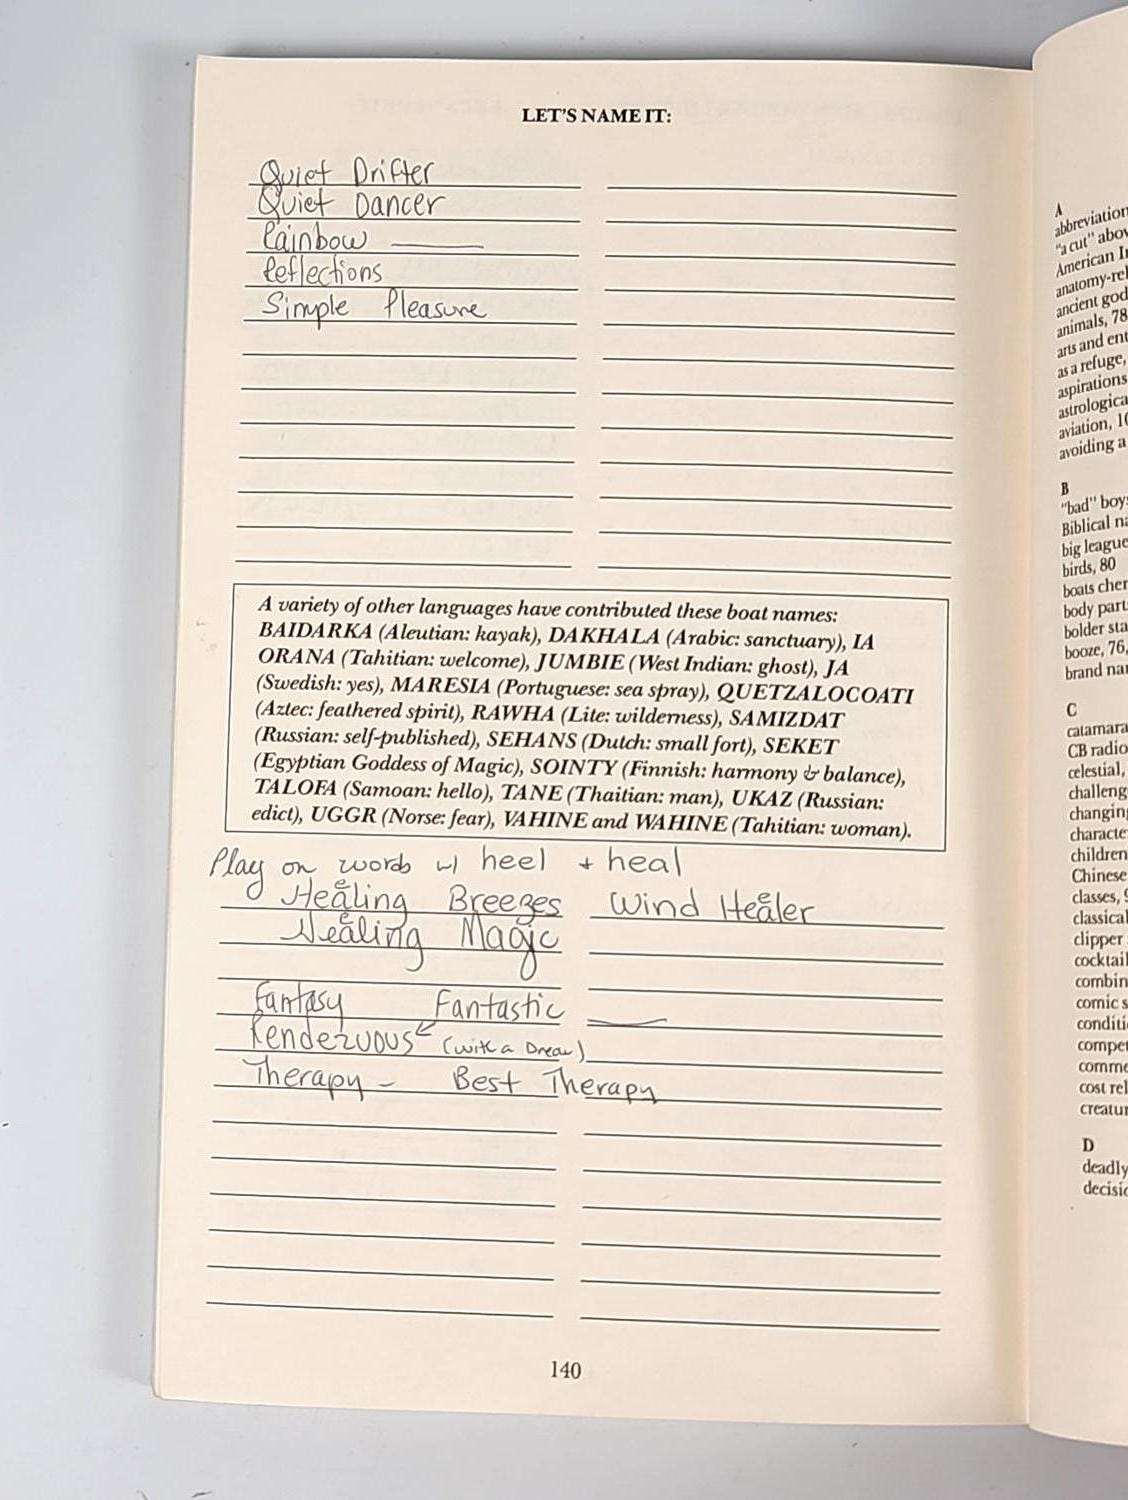 LET'S NAME IT:
Quiet Drifter
Quiet Dancer
Rainbow
Reflections
Simple Pleasure
A variety of other languages have contributed these boat names:
BAIDARKA (Aleutian: kayak), DAKHALA (Arabic: sanctuary), IA
ORANA (Tahitian: welcome), JUMBIE (West Indian: ghost), JA
(Swedish: yes), MARESIA (Portuguese: sea spray), QUETZALOCOATI
(Aztec: feathered spirit), RAWHA (Lite: wilderness), SAMIZDAT
(Russian: self-published), SEHANS (Dutch: small fort), SEKET
(Egyptian Goddess of Magic), SOINTY (Finnish: harmony & balance),
TALOFA (Samoan: hello), TANE (Thaitian: man), UKAZ (Russian:
edict), UGGR (Norse: fear), VAHINE and WAHINE (Tahitian: woman).
Play on words w/ heel + heal
e
Healing Breezes Wind Healer
e
Healing Magic
Fantasy Fantastic
Rendezvous (with a Dream)
Therapy - Best Therapy
140
A
abbreviation
"a cut" abov
American I
anatomy-rel
ancient god
animals, 78
arts and ent
as a refuge,
aspirations
astrologica
aviation, 10
avoiding a
B
"bad" boy
Biblical na
big league
birds, 80
boats cher
body part
bolder sta
booze, 76,
brand nar
C
catamara
CB radio
celestial,
challeng
changing
characte
children
Chinese
classes, 9
classical
clipper
cocktail
combin
comic s
conditi
compet
comme
cost rel
creatur
D
deadly
decisi